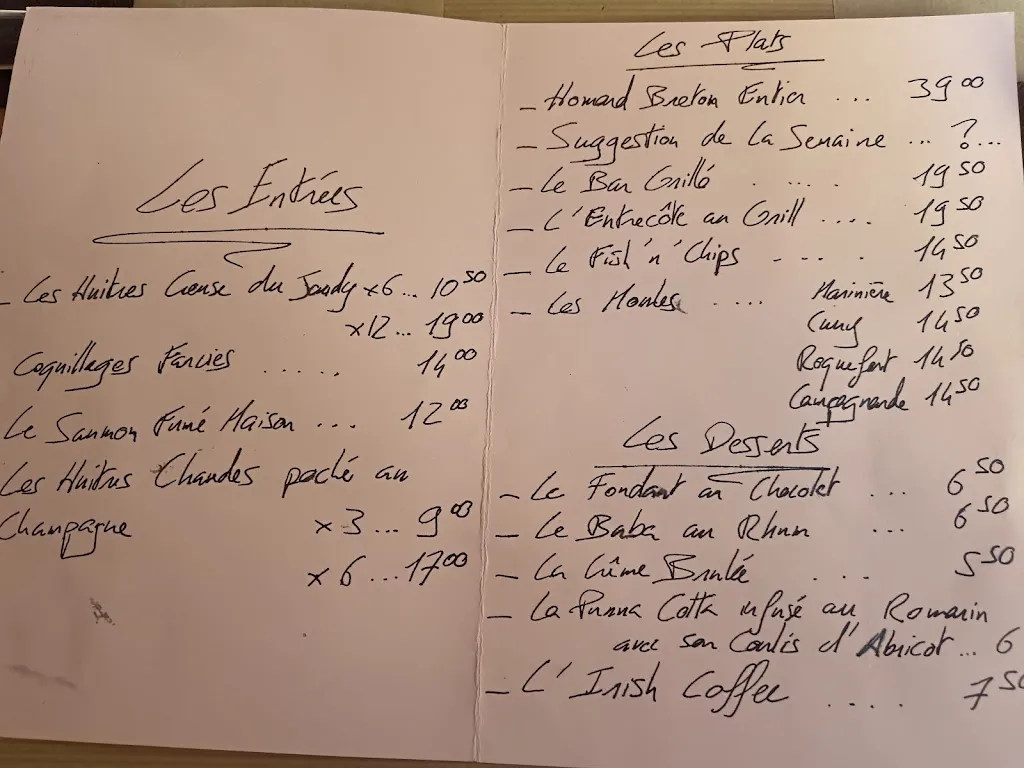 Les Entrées
- Les Huitres Creuse du Jaudy x6... 10 50
x12... 19 00
Coquillages Farcies ..... 14 00
Le Saumon Fumé Maison ... 12 00
Les Huitres Chaudes poché au
Champagne x3... 9 00
x6...17 00
Les Plats
- Homard Breton Entier ... 39 00
- Suggestion de La Semaine ... ?...
- Le Bar Grillé ..... 19 50
- L'Entrecôte au Grill .... 19 50
- Le Fish'n'Chips .... 14 50
- Les Moules .... Marinière 13 50
Curry 14 50
Roquefort 14 50
Campagnarde 14 50
Les Desserts
- Le Fondant au Chocolat ... 6 50
- Le Baba au Rhum ... 6 50
- La Crême Brulée .... 5 50
- La Panna Cotta infusé au Romarin
avec son Coulis d'Abricot... 6
- L'Irish Coffee .... 7 50